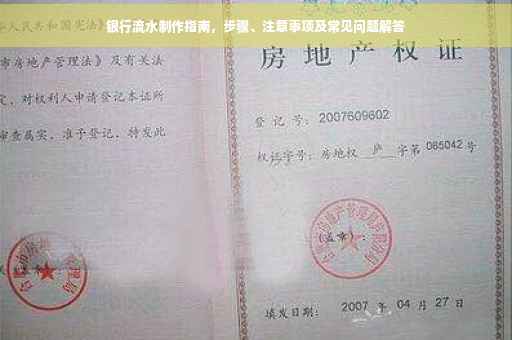 银行流水制作指南，步骤、注意事项及常见问题解答
华人民共和国宪法》
市房地产管理法》及有关法
定，对权利人申请登记本证所
审查属实，准予登记，特发此
房地产权证
登记号：2007609602
权证字号：房地权 庐 字第 085042 号
(盖章)：
填发日期：2007 年 04 月 27 日